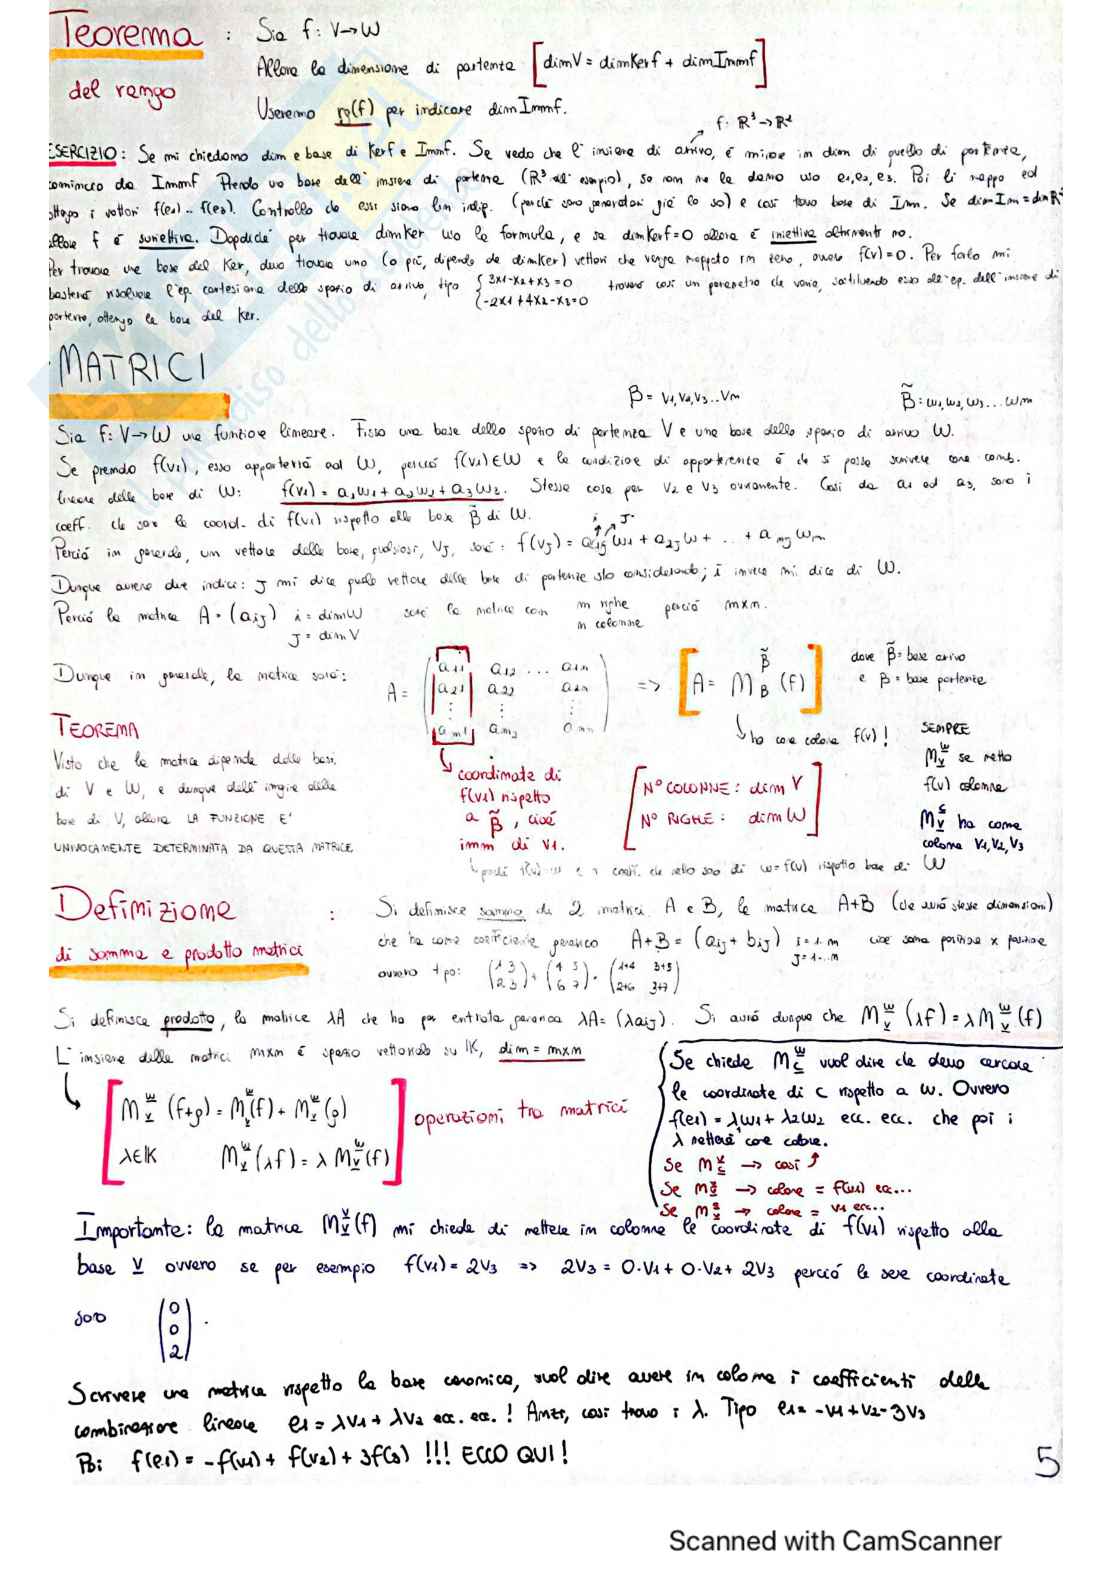 Teorema : Sia f: V→W
del rango
Allora la dimensione di partenza [dimV = dimKerf + dimImmf]
Useremo rg(f) per indicare dimImmf.
f: R³→R²
ESERCIZIO: Se mi chiedono dim e base di Kerf e Immf. Se vedo che l'insieme di arrivo, é minore in dim di quello di partenza,
comincio da Immf Prendo una base dell'insieme di partenza (R³ ad esempio), se non me la danno uso e1,e2,e3. Poi li mappo ed
ottengo i vettori f(e1)..f(e3). Controllo che essi siano lin indip. (perché sono generatori già lo so) e cosi trovo base di Imm. Se dimIm = dimR²
allora f é suriettiva. Dopodiché per trovare dimKer uso la formula, e se dimKerf=0 allora é iniettiva altrimenti no.
Per trovare una base del Ker, devo trovare uno (o piú, dipende da dimKer) vettori che venga mappato in zero, ovvero f(v)=0. Per farlo mi
basterá risolvere l'eq. cartesiana dello spazio di arrivo, tipo { 3x1-x2+x3=0 trovero cosi un parametro che varia, sostituendo esso all'eq. dell'insieme di
{ -2x1+4x2-x3=0
partenza, ottengo la base del Ker.
MATRICI
B = v1,v2,v3..vn
B̃: w1,w2,w3...wm
Sia f: V→W una funzione lineare. Fisso una base dello spazio di partenza V e una base dello spazio di arrivo W.
Se prendo f(v1), esso apparterrá ad W, perché f(v1)∈W e la condizione di appartenenza é che si possa scrivere come comb.
lineare delle base di W: f(v1) = a1w1 + a2w2 + a3w3. Stessa cosa per v2 e v3 ovviamente. Cosi da a1 ad a3, sono i
coeff. che son le coord. di f(v1) rispetto alla base B̃ di W.
i J
Perció in generale, un vettore della base, qualsiasi, vJ, sará: f(vJ) = aiJ w1 + a2J w + ... + amJ wm
Dunque avremo due indici: J mi dice quale vettore della base di partenza sto considerando; i invece mi dice di W.
Perció la matrice A = (aiJ) i = dimW sará la matrice con m righe perció mxn.
J = dimV n colonne
Dunque in generale, la matrice sará:
A = ( a11 a12 ... a1n
a21 a22 a2n
⋮ ⋮ ⋮
am1 am2 amn ) => [A = M_B^B̃ (f)]
dove B̃ = base arrivo
e B = base partenza
ha come colonne f(v)!
TEOREMA
Visto che la matrice dipende dalle basi
di V e W, e dunque dell'imgine della
base di V, allora LA FUNZIONE E'
UNIVOCAMENTE DETERMINATA DA QUESTA MATRICE
coordinate di
f(v1) rispetto
a B̃, cioé
imm di v1.
[N° COLONNE: dim V
N° RIGHE: dim W]
SEMPRE
M_v^w se metto
f(v) colonne
M_v^c ha come
colonne v1,v2,v3
Definizione :
di somma e prodotto matrici
Si definisce somma di 2 matrici A e B, la matrice A+B (che avrá stesse dimensioni)
che ha come coefficiente generico A+B = (aiJ + biJ) i=1..m cioé somma posizione x posizione
J=1...n
ovvero tipo: (1 3 / 2 3) + (4 5 / 6 7) = (1+4 3+5 / 2+6 3+7)
Si definisce prodotto, la matrice λA che ha per entrata generica λA = (λaiJ). Si avrá dunque che M_v^w (λf) = λM_v^w (f)
L'insieme delle matrici mxn é spazio vettoriale su K, dim = mxn
[M_v^w (f+g) = M_v^w(f) + M_v^w(g)
λ∈K M_v^w (λf) = λ M_v^w (f)] operazioni tra matrici
Se chiede M_c^w vuol dire che devo cercare
le coordinate di c rispetto a w. Ovvero
f(e1) = λw1 + λ2w2 ecc. ecc. che poi i
λ metterá come colonne.
Se M_c^v → cosi
Se → colonne = f(v1) ecc...
Se → colonne = v1 ecc...
Importante: la matrice M_v^v(f) mi chiede di mettere in colonna le coordinate di f(v1) rispetto alla
base v ovvero se per esempio f(v1) = 2v3 => 2v3 = 0·v1 + 0·v2 + 2v3 perció le sere coordinate
sono (0 / 0 / 2).
Scrivere una matrice rispetto la base canonica, vuol dire avere in colonna i coefficienti della
combinazione lineare e1 = λv1 + λv2 ecc. ecc.! Anzi, cosi trovo i λ. Tipo e1 = -v1 + v2 - 3v3
Poi f(e1) = -f(v1) + f(v2) + 3f(3) !!! ECCO QUI!
5
Scanned with CamScanner